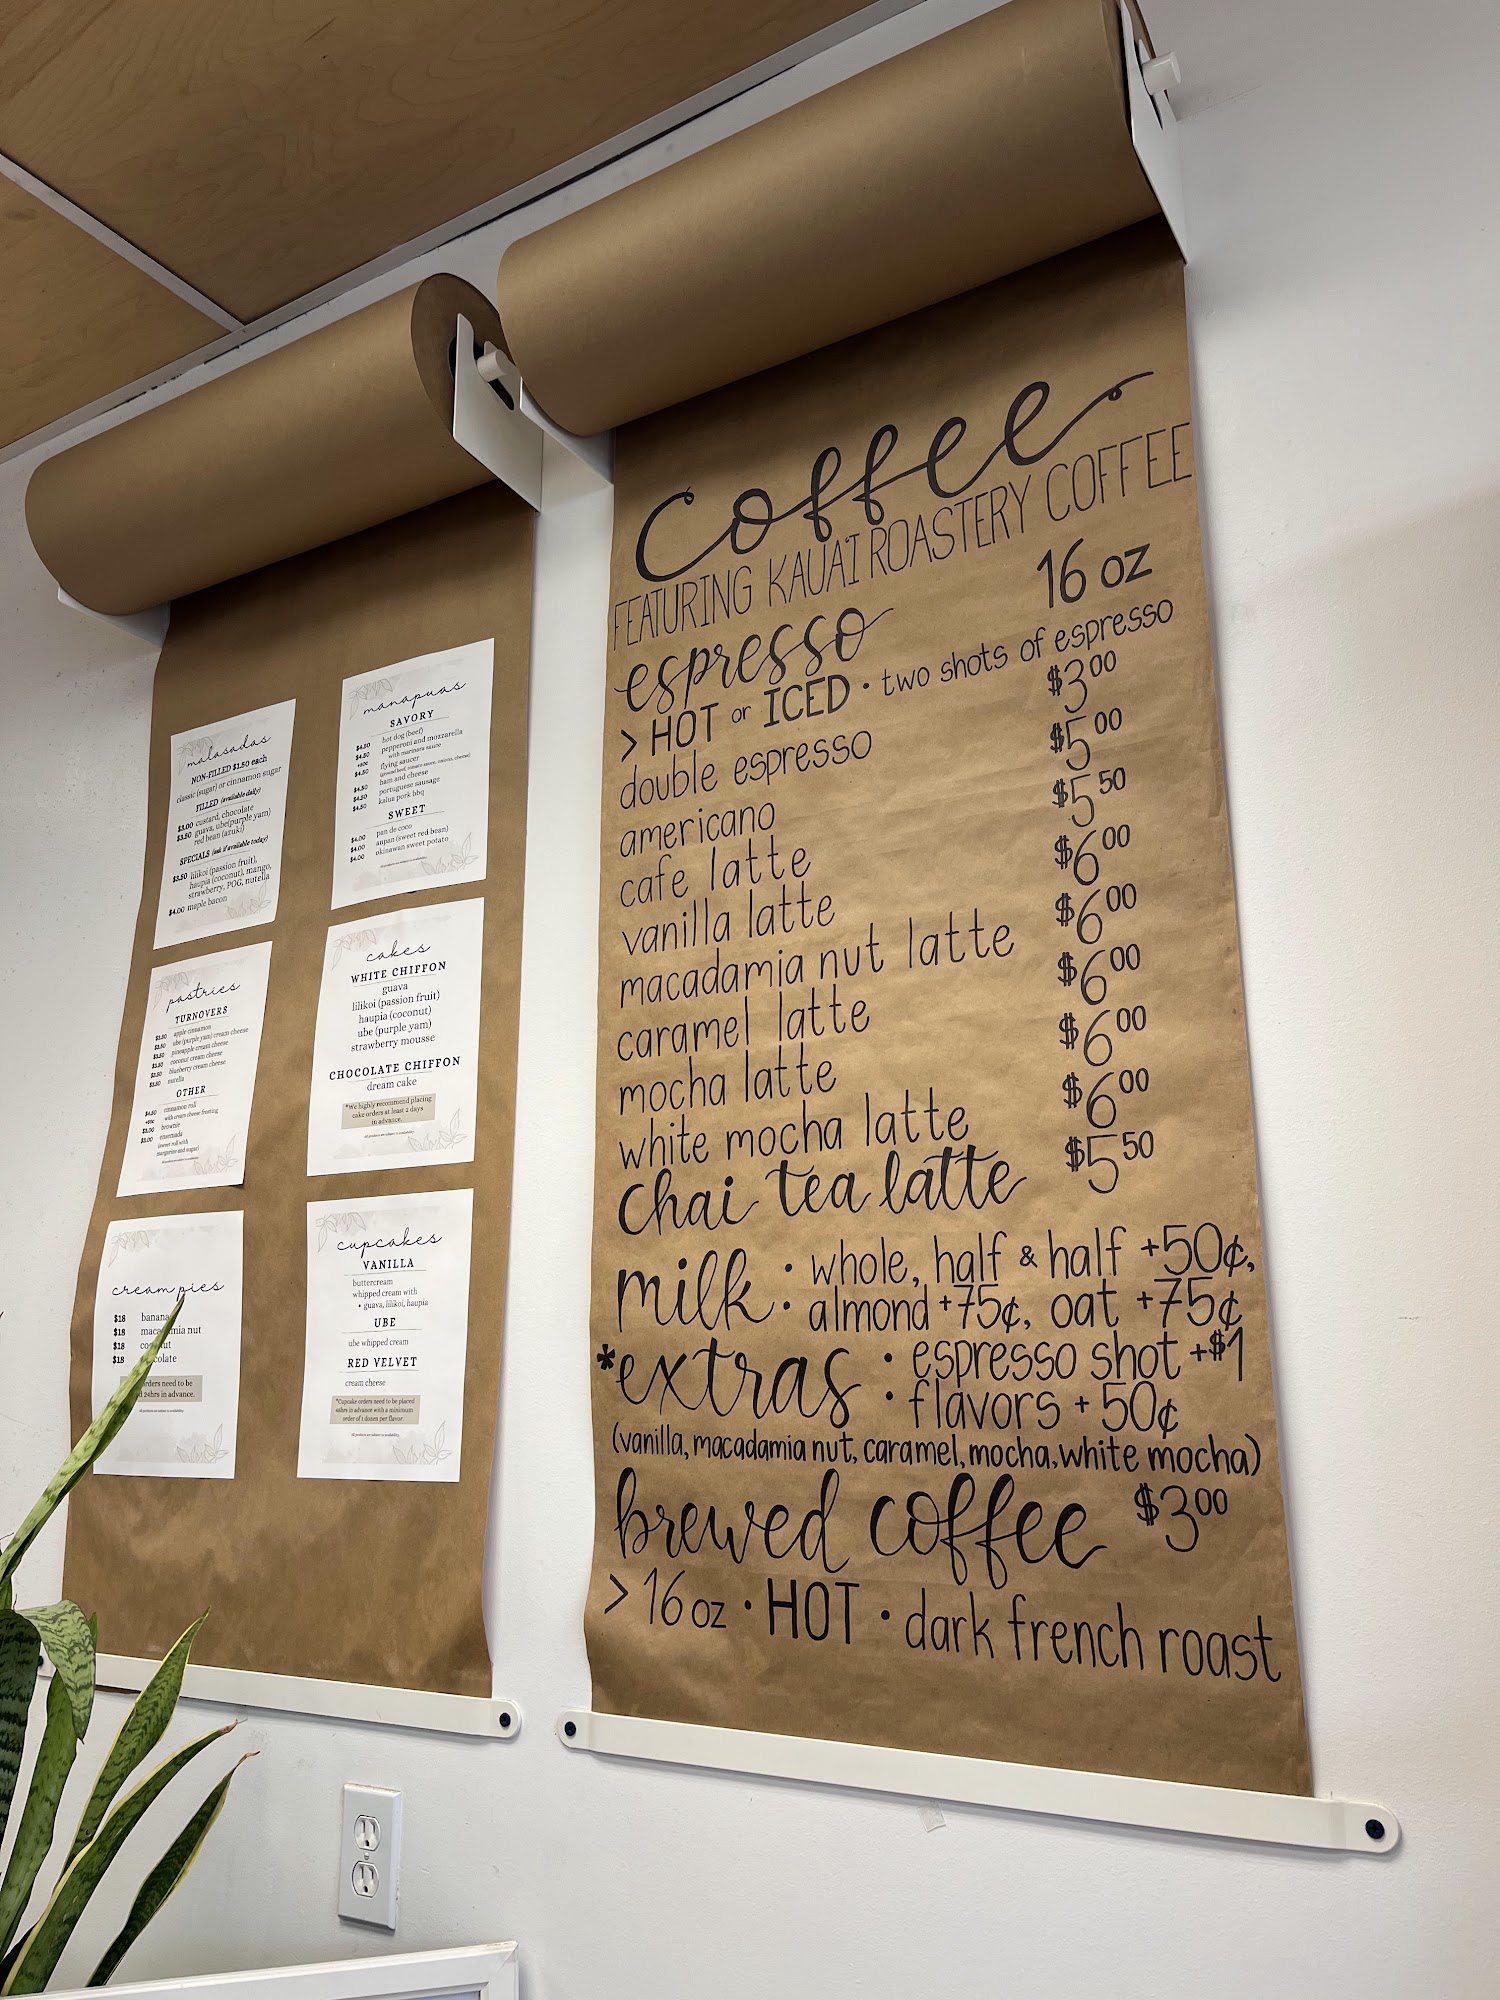 malasadas
NON-FILLED $1.50 each
classic (sugar) or cinnamon sugar
FILLED (available daily)
$3.00 custard, chocolate
$3.50 guava, ube(purple yam)
red bean (azuki)
SPECIALS (ask if available today)
$3.50 lilikoi (passion fruit),
haupia (coconut), mango,
strawberry, POG, nutella
$4.00 maple bacon
manapuas
SAVORY
$4.50 hot dog (beef)
$4.50 pepperoni and mozzarella
+50¢ with marinara sauce
$4.50 flying saucer
(ground beef, tomato sauce, onions, cheese)
$4.50 ham and cheese
$4.50 portuguese sausage
$4.50 kalua pork bbq
SWEET
$4.00 pan de coco
$4.00 anpan (sweet red bean)
$4.00 okinawan sweet potato
All products are subject to availability.
pastries
TURNOVERS
$3.50 apple cinnamon
$3.50 ube (purple yam) cream cheese
$3.50 pineapple cream cheese
$3.50 coconut cream cheese
$3.50 blueberry cream cheese
$3.50 nutella
OTHER
$4.50 cinnamon roll
+50¢ with cream cheese frosting
$3.00 brownie
$3.00 ensemada
(sweet roll with
margarine and sugar)
All products are subject to availability.
cakes
WHITE CHIFFON
guava
lilikoi (passion fruit)
haupia (coconut)
ube (purple yam)
strawberry mousse
CHOCOLATE CHIFFON
dream cake
*We highly recommend placing
cake orders at least 2 days
in advance.
All products are subject to availability.
cream pies
$18 banana
$18 macadamia nut
$18 coconut
$18 chocolate
orders need to be
24hrs in advance.
All products are subject to availability.
cupcakes
VANILLA
buttercream
whipped cream with
• guava, lilikoi, haupia
UBE
ube whipped cream
RED VELVET
cream cheese
*Cupcake orders need to be placed
48hrs in advance with a minimum
order of 1 dozen per flavor.
All products are subject to availability.
coffee
FEATURING KAUA'I ROASTERY COFFEE
espresso 16 oz
> HOT or ICED • two shots of espresso
double espresso $3.00
americano $5.00
cafe latte $5.50
vanilla latte $6.00
macadamia nut latte $6.00
caramel latte $6.00
mocha latte $6.00
white mocha latte $6.00
chai tea latte $5.50
milk • whole, half & half +50¢,
• almond +75¢, oat +75¢
*extras • espresso shot +$1
• flavors + 50¢
(vanilla, macadamia nut, caramel, mocha, white mocha)
brewed coffee $3.00
> 16 oz • HOT • dark french roast